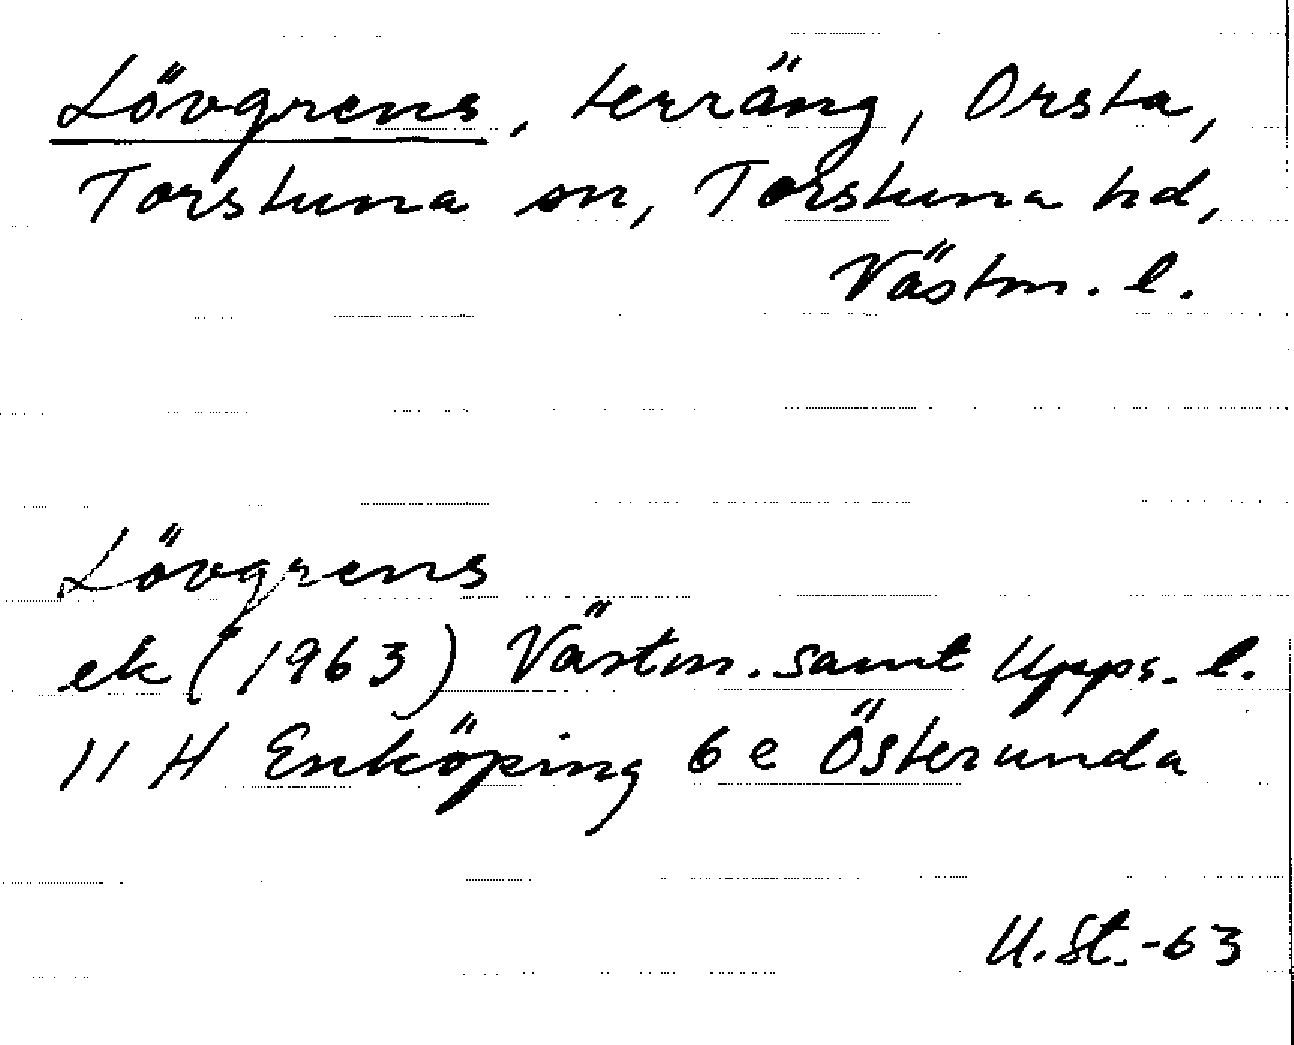 Lövgrens, terräng, Orsta,
Torstuna sn, Torstuna hd,
Västm. l.
Lövgrens
ek (1963) Västm. samt Upps. l.
11 H Enköping 6 e Österunda
U.St.-63